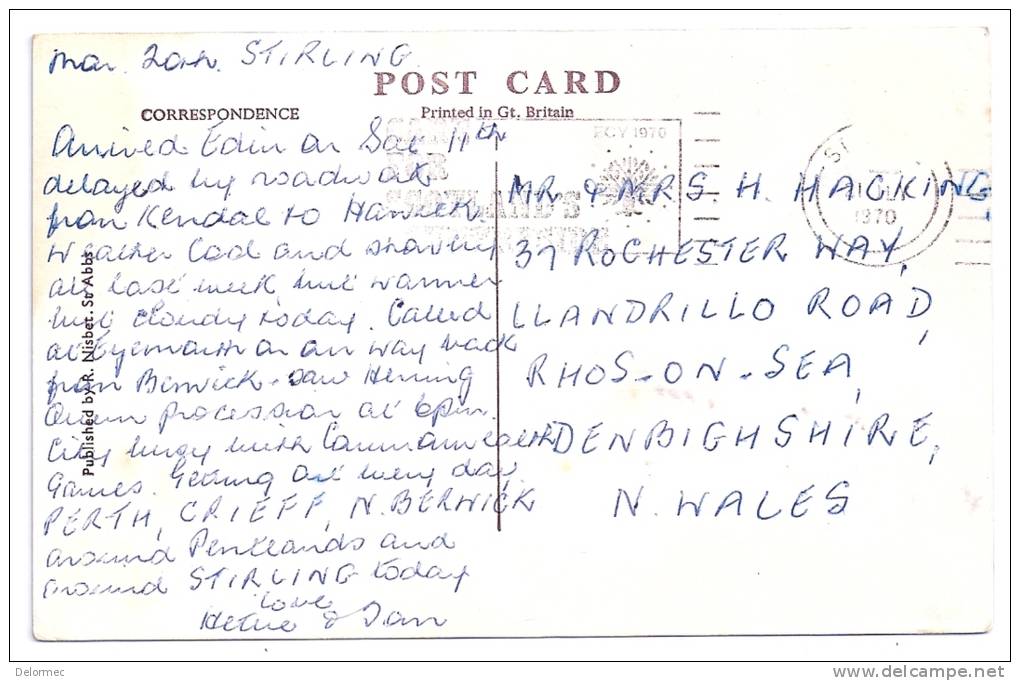 Mon. 20th. STIRLING
POST CARD
CORRESPONDENCE
Printed in Gt. Britain
Arrived Edin on Sat 11th
delayed by roadwork
from Kendal to Hawick
Weather Cold and
all last week but warmer
but cloudy today. Called
at Eyemouth on our way back
from Berwick - saw Herring
Queen Procession at 6pm.
City busy with Commonwealth
Games. Getting out every day
PERTH, CRIEFF, N. BERWICK
around Pentlands and
around STIRLING today
love
Hettie & Ian
Published by R. Nisbet. St Abbs
ECY 1970
SCOTLAND'S
1970
MR & MRS H. HACKING,
37 ROCHESTER WAY,
LLANDRILLO ROAD,
RHOS-ON-SEA,
DENBIGHSHIRE,
N. WALES
Delormec
delcampe.net